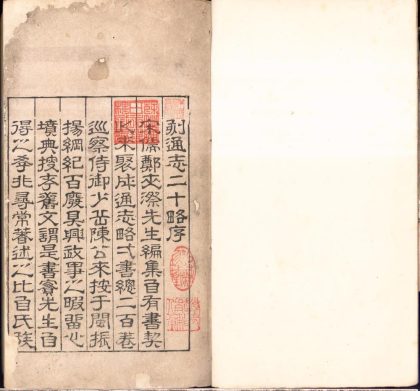 刻通志二十略序
宋儒鄭夾漈先生編集自有書契
以來聚成通志略弍書總二百卷
巡察侍御少岳陳公來按于閩振
揚綱紀百廢具興政事之暇留心
墳典搜李舊文謂是書實先生自
得之季非尋常著述之比自氏族